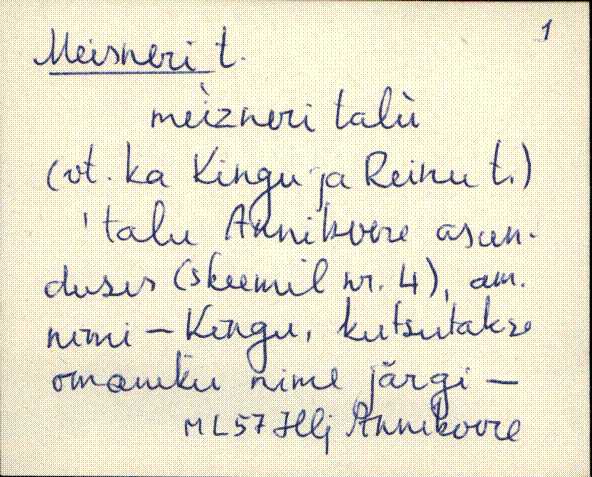 1
Meisneri t.
mèizneri talù
(vt. ka Kingu ja Reinu t.)
'talu Annikvere asun-
duses (skeemil nr. 4), am.
nimi – Kingu, kutsutakse
omaniku nime järgi –
ML57 Hlj Annikvere